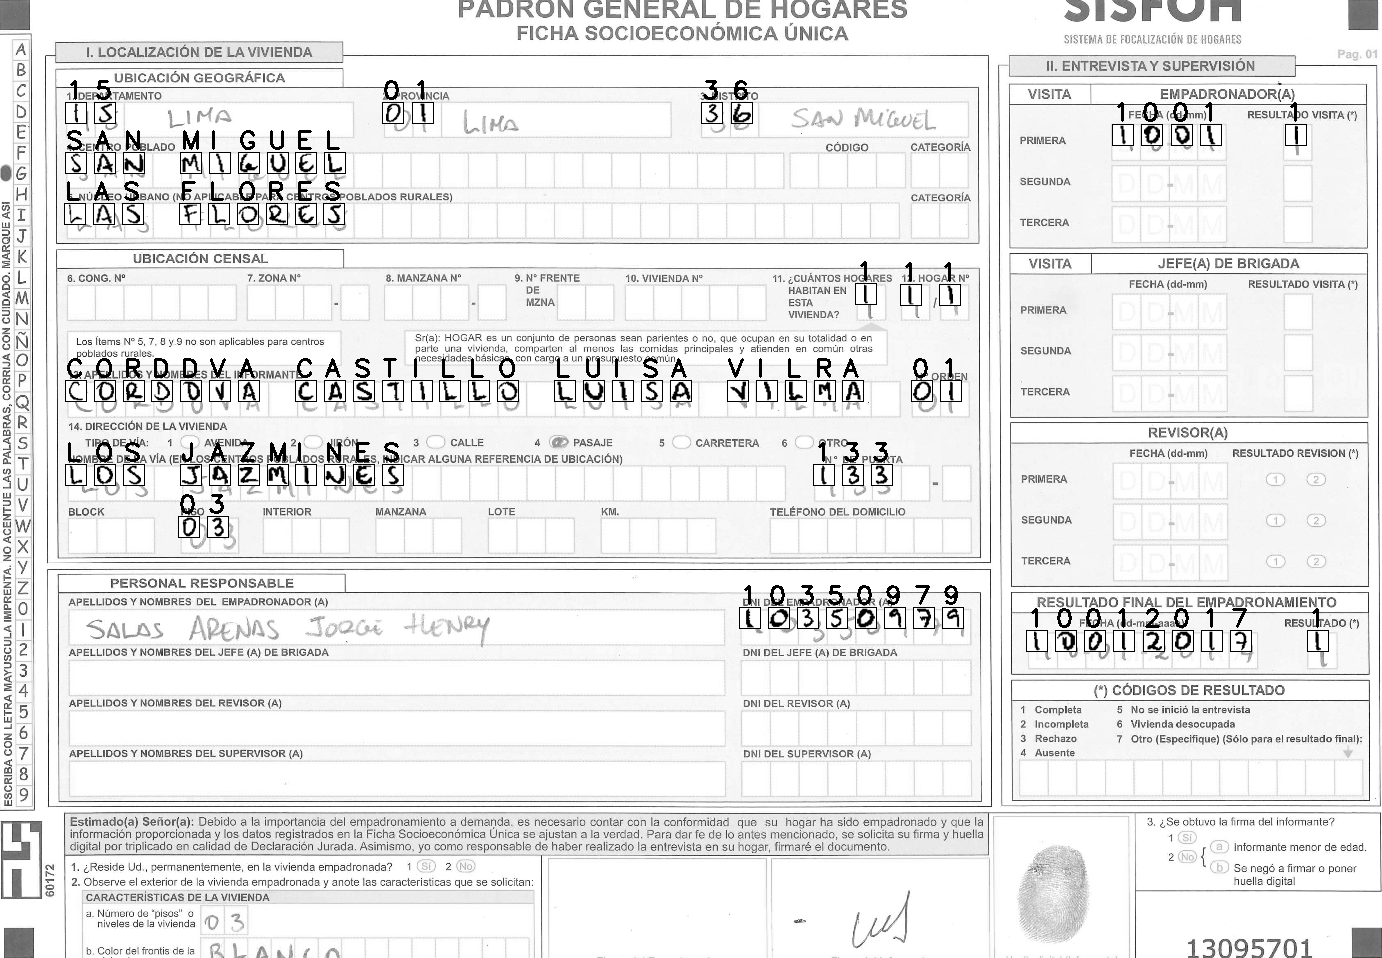 PADRON GENERAL DE HOGARES
FICHA SOCIOECONÓMICA ÚNICA
SISFOH
SISTEMA DE FOCALIZACIÓN DE HOGARES
Pag. 01
ESCRIBA CON LETRA MAYUSCULA IMPRENTA. NO ACENTUE LAS PALABRAS, CORRIJA CON CUIDADO. MARQUE ASI
A
B
C
D
E
F
G
H
I
J
K
L
M
N
Ñ
O
P
Q
R
S
T
U
V
W
X
Y
Z
0
1
2
3
4
5
6
7
8
9
60172
I. LOCALIZACIÓN DE LA VIVIENDA
UBICACIÓN GEOGRÁFICA
1. DEPARTAMENTO 2. PROVINCIA 3. DISTRITO
15 01 36
15 LIMA 01 LIMA 36 SAN MIGUEL
SAN MIGUEL
4. CENTRO POBLADO CÓDIGO CATEGORÍA
SAN MIGUEL
LAS FLORES
5. NÚCLEO URBANO (NO APLICABLE PARA CENTROS POBLADOS RURALES) CATEGORÍA
LAS FLORES
UBICACIÓN CENSAL
6. CONG. Nº 7. ZONA Nº 8. MANZANA Nº 9. Nº FRENTE DE MZNA 10. VIVIENDA Nº 11. ¿CUÁNTOS HOGARES HABITAN EN ESTA VIVIENDA? 12. HOGAR Nº
1 1 1
1 1 / 1
Los Ítems Nº 5, 7, 8 y 9 no son aplicables para centros
poblados rurales.
Sr(a): HOGAR es un conjunto de personas sean parientes o no, que ocupan en su totalidad o en
parte una vivienda, comparten al menos las comidas principales y atienden en común otras
necesidades básicas, con cargo a un presupuesto común.
CORDDVA CASTILLO LUISA VILRA 01
13. APELLIDOS Y NOMBRES DEL INFORMANTE ORDEN
CORDDVA CASTILLO LUISA VILMA 01
14. DIRECCIÓN DE LA VIVIENDA
TIPO DE VÍA: 1 AVENIDA 2 JIRÓN 3 CALLE 4 PASAJE 5 CARRETERA 6 OTRO
LOS JAZMINES 133
NOMBRE DE LA VÍA (EN LOS CENTROS POBLADOS RURALES, INDICAR ALGUNA REFERENCIA DE UBICACIÓN) Nº DE PUERTA
LOS JAZMINES 133 -
03
BLOCK PISO INTERIOR MANZANA LOTE KM. TELÉFONO DEL DOMICILIO
03
PERSONAL RESPONSABLE
APELLIDOS Y NOMBRES DEL EMPADRONADOR (A) DNI DEL EMPADRONADOR (A)
10350979
SALAS ARENAS JORGE HENRY 10350979
APELLIDOS Y NOMBRES DEL JEFE (A) DE BRIGADA DNI DEL JEFE (A) DE BRIGADA
APELLIDOS Y NOMBRES DEL REVISOR (A) DNI DEL REVISOR (A)
APELLIDOS Y NOMBRES DEL SUPERVISOR (A) DNI DEL SUPERVISOR (A)
II. ENTREVISTA Y SUPERVISIÓN
VISITA EMPADRONADOR(A)
FECHA (dd-mm) RESULTADO VISITA (*)
1001 1
PRIMERA 1001 1
SEGUNDA DD-MM
TERCERA DD-MM
VISITA JEFE(A) DE BRIGADA
FECHA (dd-mm) RESULTADO VISITA (*)
PRIMERA DD-MM
SEGUNDA DD-MM
TERCERA DD-MM
REVISOR(A)
FECHA (dd-mm) RESULTADO REVISION (*)
PRIMERA DD-MM 1 2
SEGUNDA DD-MM 1 2
TERCERA DD-MM 1 2
RESULTADO FINAL DEL EMPADRONAMIENTO
FECHA (dd-mm-aaaa) RESULTADO (*)
10012017 1
10012017 1
(*) CÓDIGOS DE RESULTADO
1 Completa 5 No se inició la entrevista
2 Incompleta 6 Vivienda desocupada
3 Rechazo 7 Otro (Especifique) (Sólo para el resultado final):
4 Ausente
Estimado(a) Señor(a): Debido a la importancia del empadronamiento a demanda, es necesario contar con la conformidad que su hogar ha sido empadronado y que la
información proporcionada y los datos registrados en la Ficha Socioeconómica Única se ajustan a la verdad. Para dar fe de lo antes mencionado, se solicita su firma y huella
digital por triplicado en calidad de Declaración Jurada. Asimismo, yo como responsable de haber realizado la entrevista en su hogar, firmaré el documento.
1. ¿Reside Ud., permanentemente, en la vivienda empadronada? 1 Sí 2 No
2. Observe el exterior de la vivienda empadronada y anote las características que se solicitan:
CARACTERÍSTICAS DE LA VIVIENDA
a. Número de "pisos" o
niveles de la vivienda 03
b. Color del frontis de la BLANCO
3. ¿Se obtuvo la firma del informante?
1 Sí
2 No
a Informante menor de edad.
b Se negó a firmar o poner
huella digital
13095701